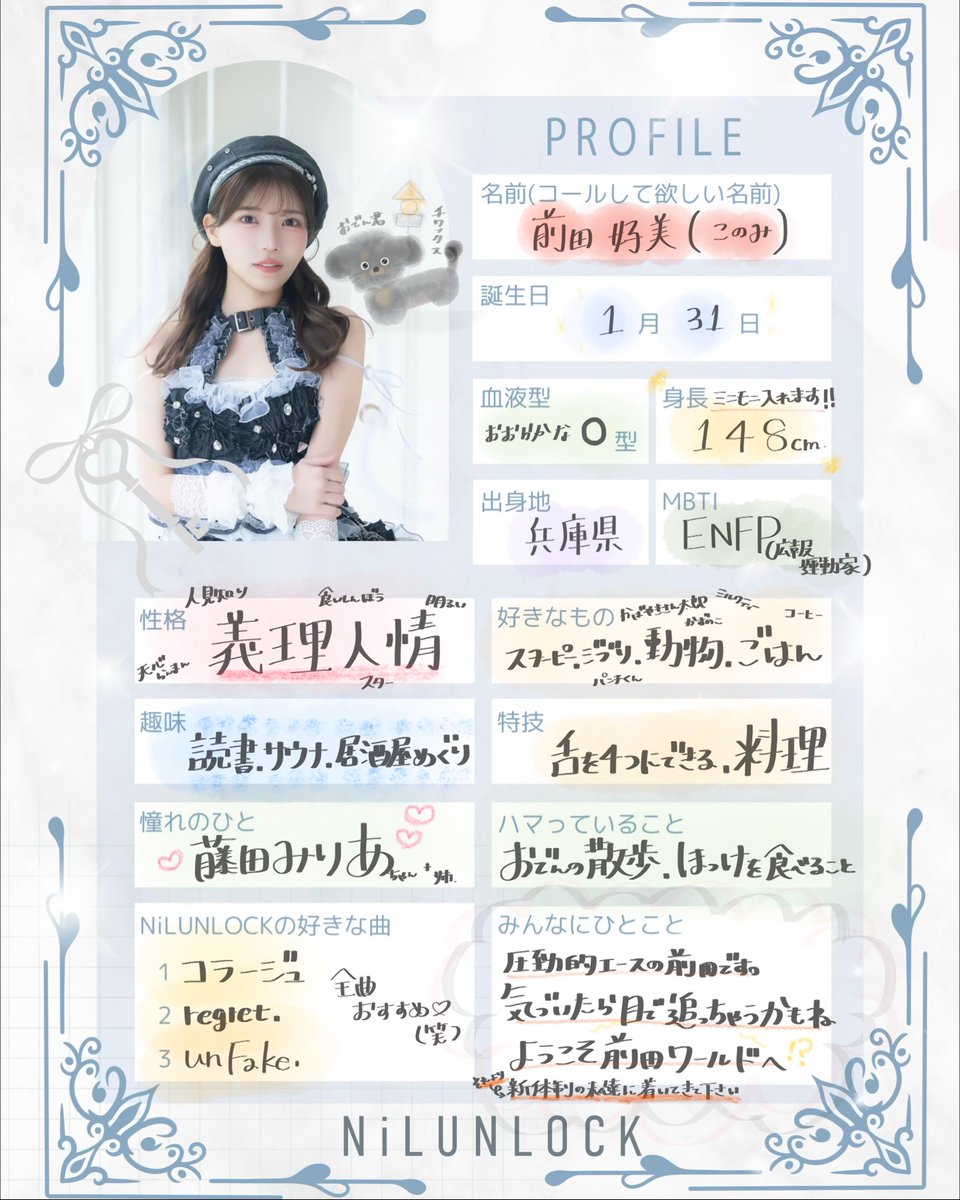 PROFILE
名前(コールして欲しい名前)
前田 好美(このみ)
おでん君
チワックス
誕生日
1月31日
血液型
おおらかな O型
身長 ミニモニ入れます!!
148cm.
出身地
兵庫県
MBTI
ENFP(広報運動家)
性格
人見知り
食いしんぼう
明るい
義理人情
天心らんまん
スター
好きなもの
かばやきさん太郎
ミルクティー
コーヒー
スヌーピー.ジブリ.動物.ごはん
パンチくん
趣味
読書.サウナ.居酒屋めぐり
特技
舌を4つにできる.料理
憧れのひと
藤田みりあちゃん+姉.
ハマっていること
おでんの散歩.ほっけを食べること
NiLUNLOCKの好きな曲
1 コラージュ
2 regret.
3 unFake.
全曲
おすすめ♡
(笑)
みんなにひとこと
圧動的エースの前田です。
気づいたら目で追っちゃうかもね
ようこそ前田ワールドへ!?
新体制の私達に着いてきて下さい
NiLUNLOCK